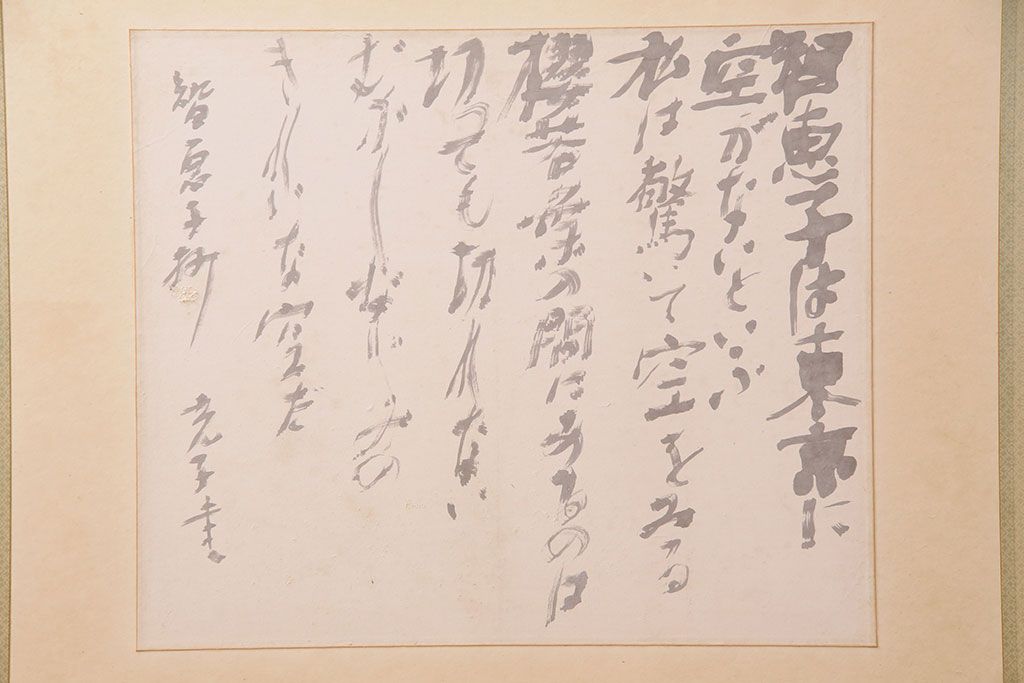 智恵子は東京に
空がないといふ
私は驚いて空をみる
櫻若葉の間にあるのは
切つても切れない
むかしなじみの
きれいな空だ
智恵子抄